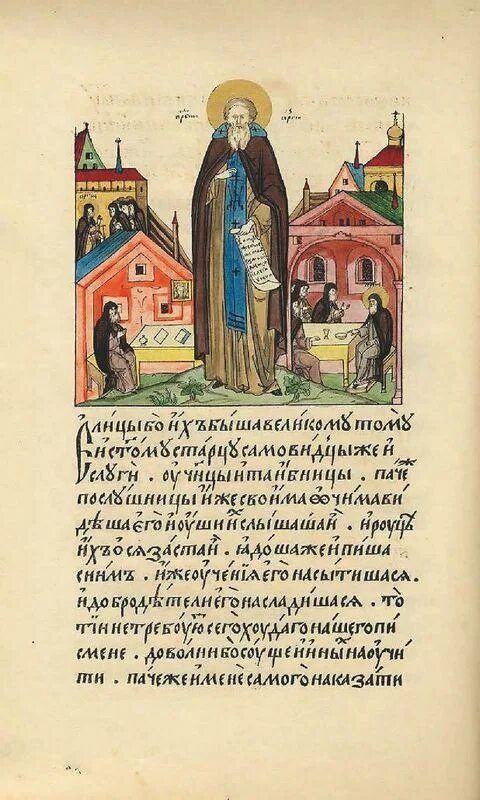 прпбны сергіи
Єлицы бо ихъ быша великому тому
и ст҃ому старцу самовидцы же и
слуги . оучн҃цы и таибницы . паче же
послушницы иже своима ѻчима ви
дѣша єго и оуши их слышаша и . и роуцѣ
ихъ осязаста и . ꙗдоша же и пиша
с ним̾ъ . иже оученїꙗ єго насытишасѧ .
и добродѣтели єго насладишасѧ . то
тїи не требоую̑т сего хоудаго нашего пи
смене . доволни бо соуще и ины̑х наоучи
ти . паче же и мене самого наказати